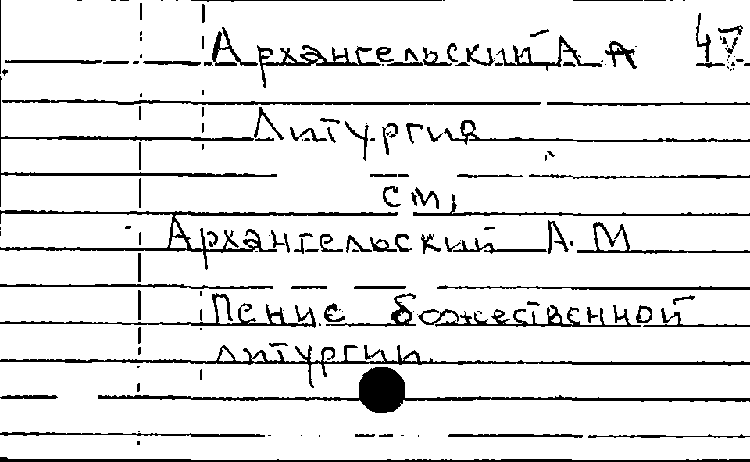 Архангельский А А 47
Литургия
см.
Архангельский А. М
Пение божественной
литургии.